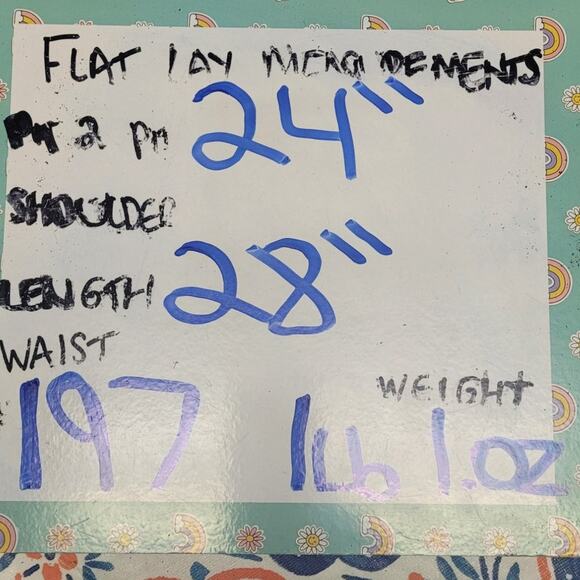 FLAT LAY MEASUREMENTS
PIT 2 PIT 24"
SHOULDER
LENGTH 28"
WAIST
WEIGHT
197 1lb 1.oz